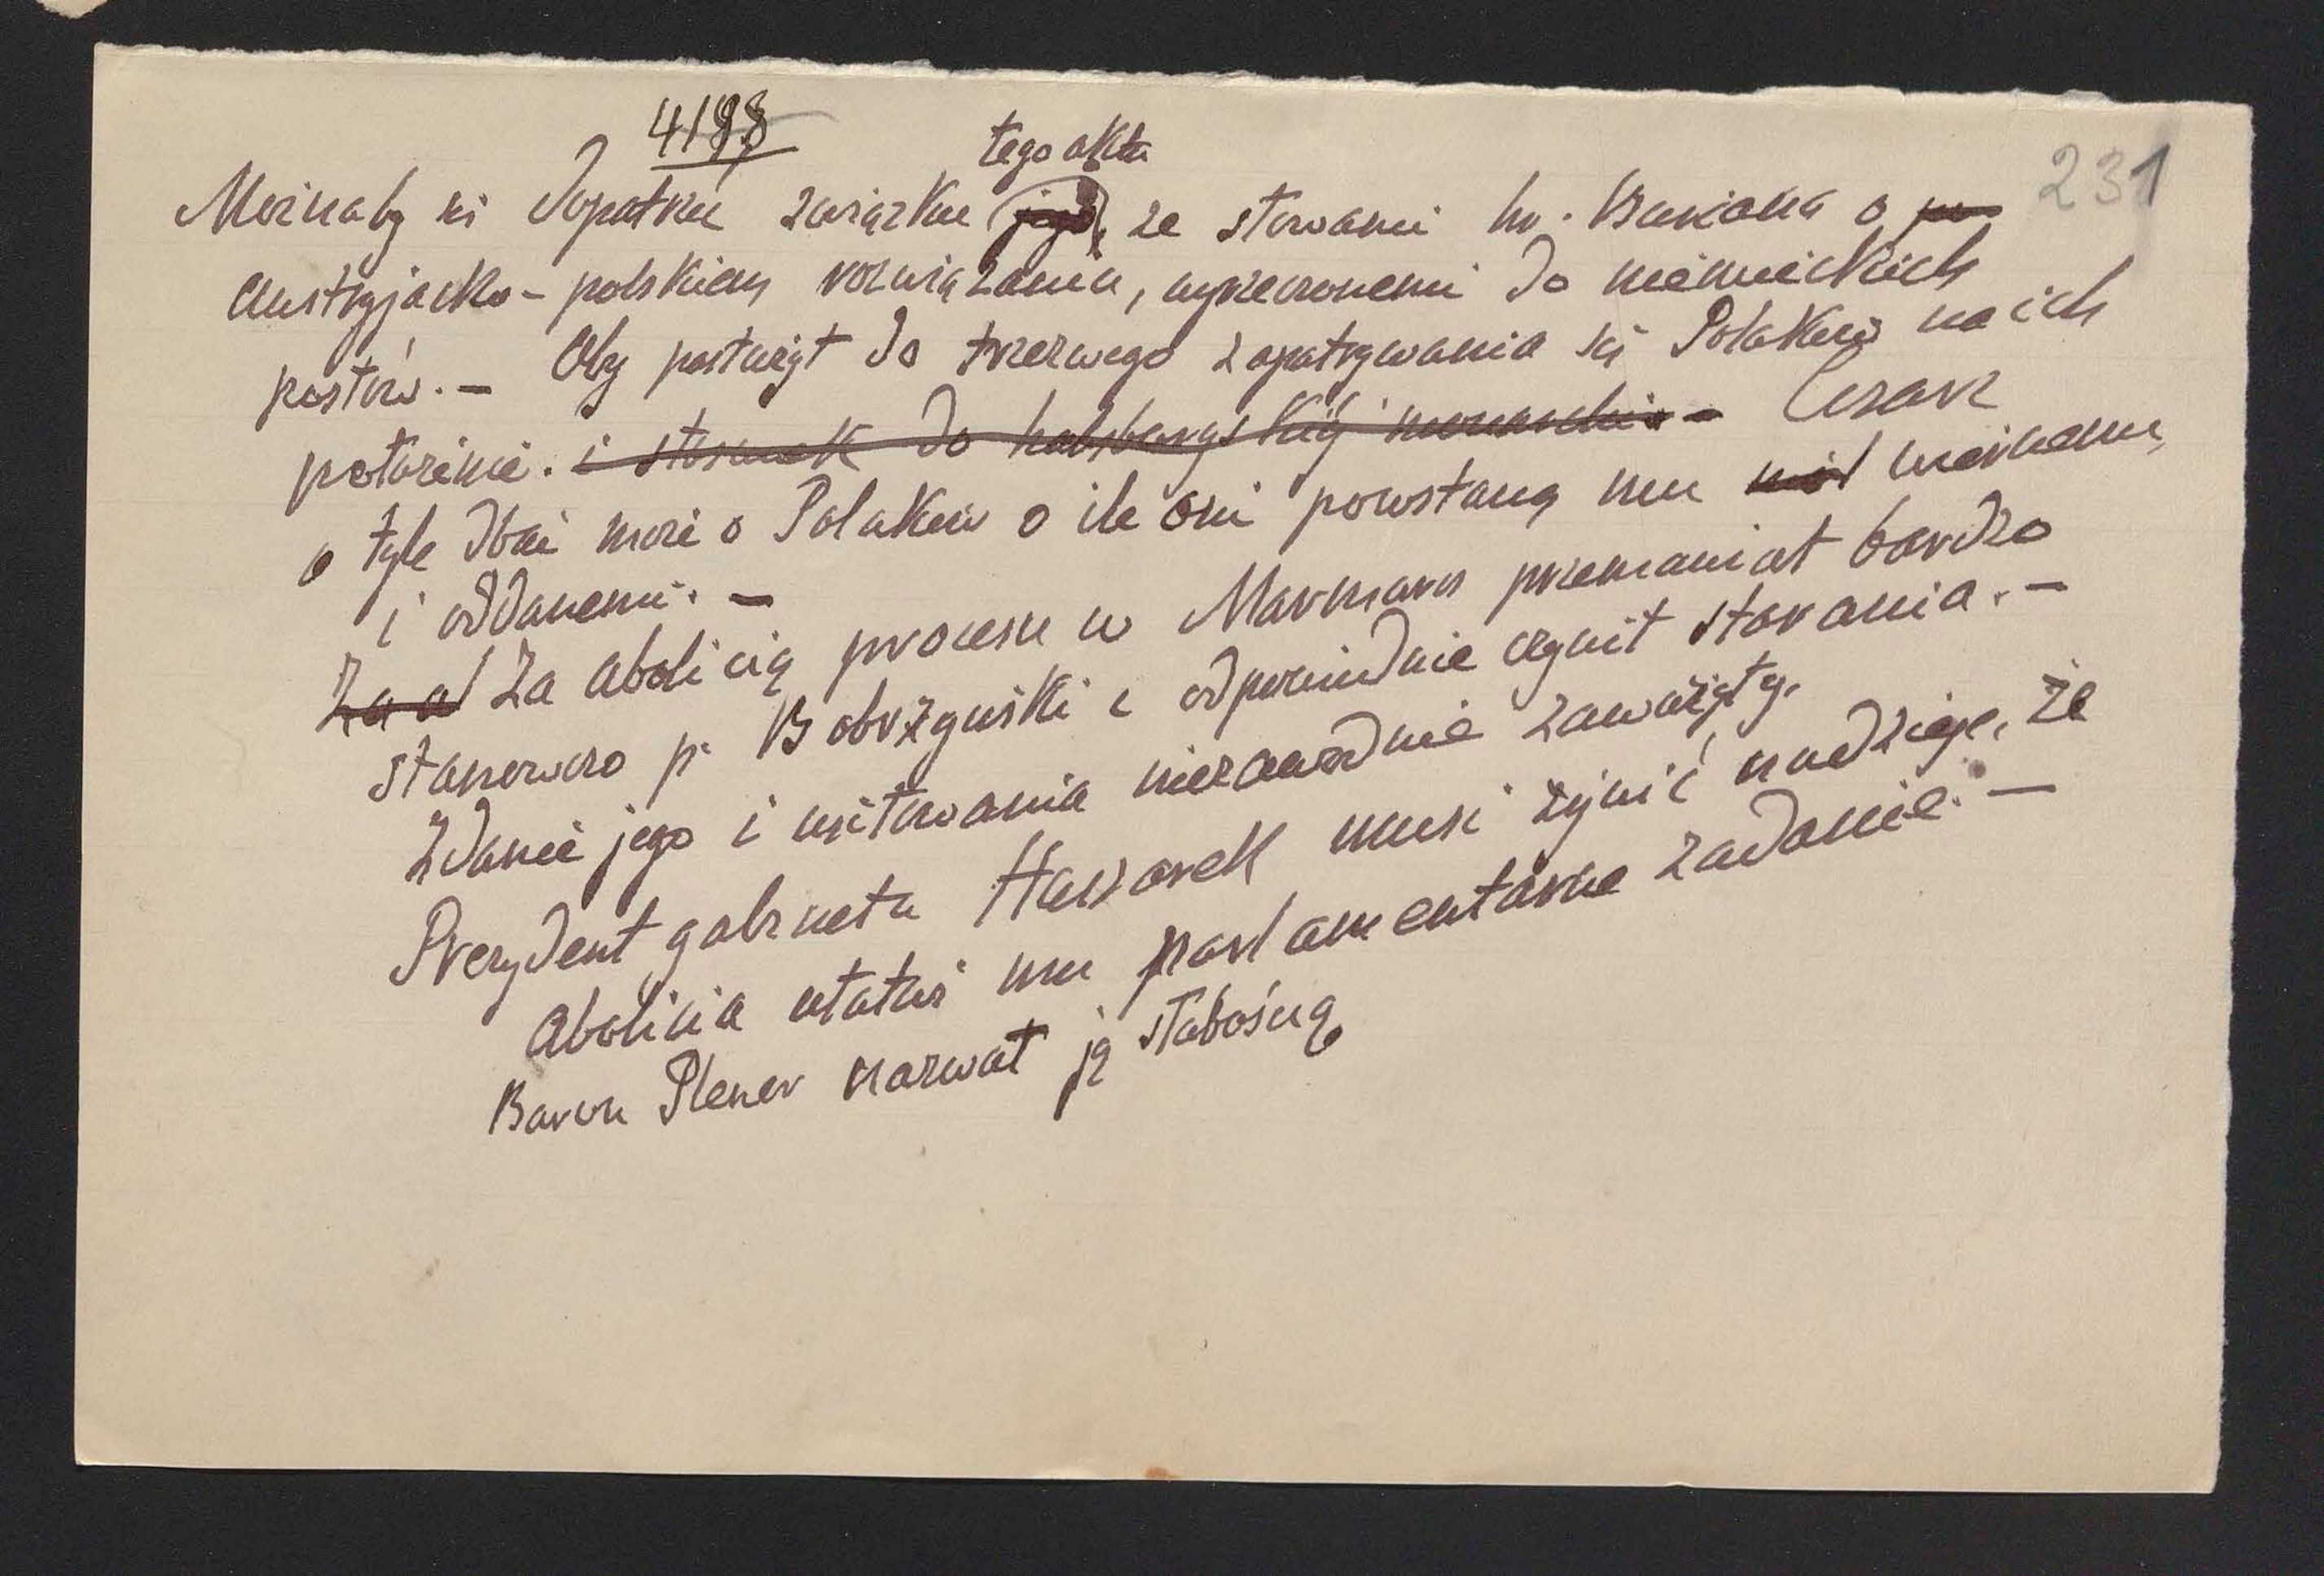 4198
231
tego aktu
Możnaby się dopatrzeć związku jego, ze słowami hr. Buriana o po
austryjacko-polskiem rozwiązaniu, wyrzeczonemi do niemieckich
posłów. — Oby posłużył do trzeźwego zapatrywania się Polaków na ich
położenie. i stosunek do habsburgskiej monarchii — Cesarz
o tyle dbać może o Polaków o ile oni powstaną mu wiernemi,
i oddanemi. —
Za a Za abolicią procesu w Marmaros przemawiał bardzo
stanowczo p. Bobrzyński i odpowiednie czynił starania. —
Zdanie jego i usiłowania niezawodnie zaważyły.
Prezydent gabinetu Hussarek musi żywić nadzieję, że
abolicia ułatwi mu parlamentarne zadanie. —
Baron Plener nazwał ją słabością